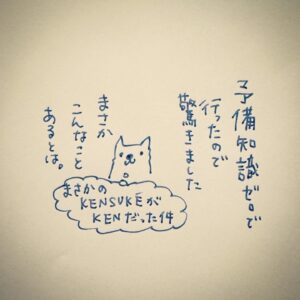 予備知識ゼロで
行ったので
驚きました
まさか
こんなこと
あるとは。
まさかの
KENSUKEが
KENだった件